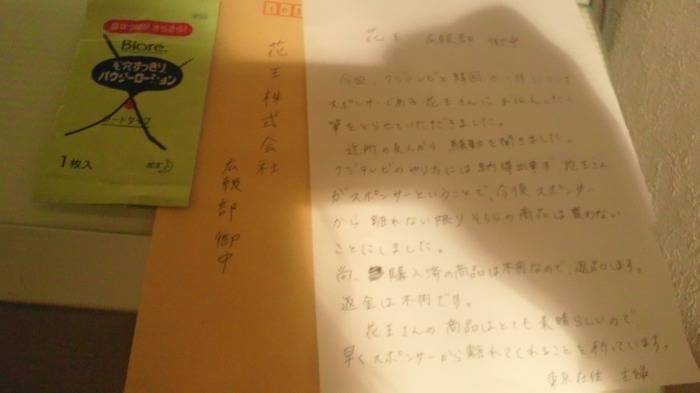 Bioré
毛穴すっきり
パウダーローション
シートタイプ
1枚入
花王
花王株式会社
広報部 御中
花王 広報部 御中
今回、フジテレビと韓国の一件について
スポンサーである花王さんにお伝えしたく
筆をとらせていただきました。
近所の友人から 騒動を聞きました。
フジテレビのやり方には納得出来ず、花王さん
がスポンサーということで、今後スポンサー
から離れない限りそちらの商品は買わない
ことにしました。
尚、購入済の商品は不用なので、返品します。
返金は不用です。
花王さんの商品はとても素晴らしいので
早くスポンサーから離れてくれることを祈っています。
東京在住 主婦